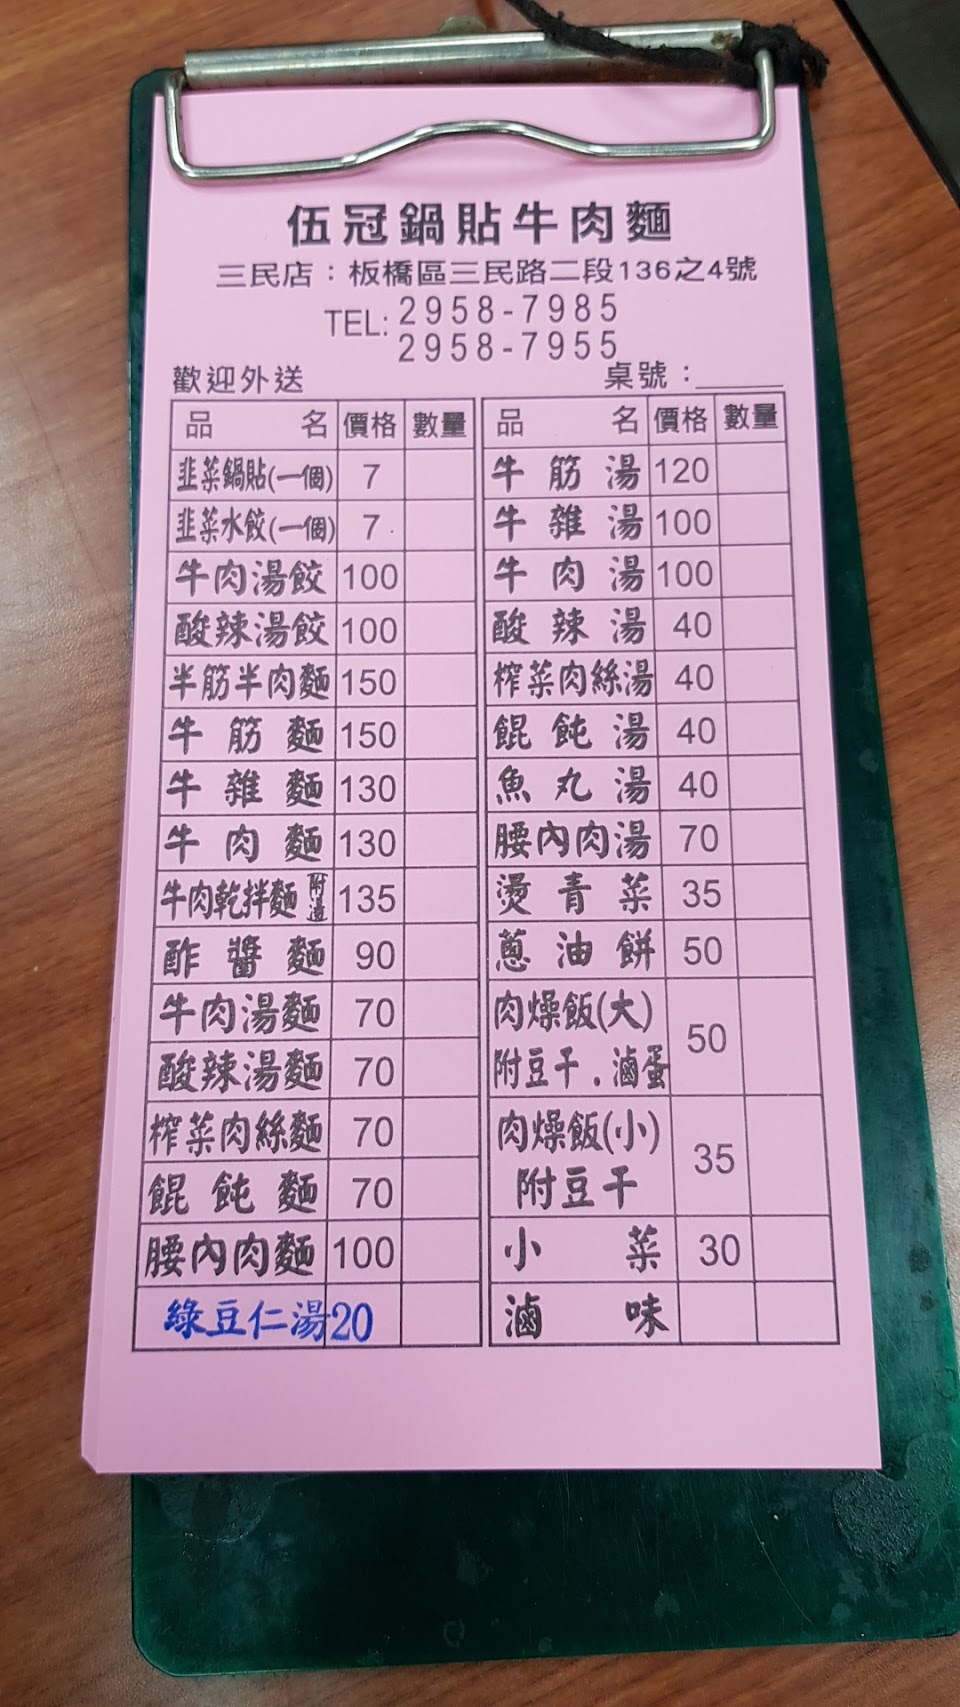 伍冠鍋貼牛肉麵
三民店：板橋區三民路二段136之4號
TEL: 2958-7985
2958-7955
歡迎外送 桌號：
品名 價格 數量
韭菜鍋貼(一個) 7
韭菜水餃(一個) 7
牛肉湯餃 100
酸辣湯餃 100
半筋半肉麵 150
牛筋麵 150
牛雜麵 130
牛肉麵 130
牛肉乾拌麵 附湯 135
酢醬麵 90
牛肉湯麵 70
酸辣湯麵 70
榨菜肉絲麵 70
餛飩麵 70
腰內肉麵 100
綠豆仁湯 20
品名 價格 數量
牛筋湯 120
牛雜湯 100
牛肉湯 100
酸辣湯 40
榨菜肉絲湯 40
餛飩湯 40
魚丸湯 40
腰內肉湯 70
燙青菜 35
蔥油餅 50
肉燥飯(大)
附豆干.滷蛋 50
肉燥飯(小)
附豆干 35
小菜 30
滷味